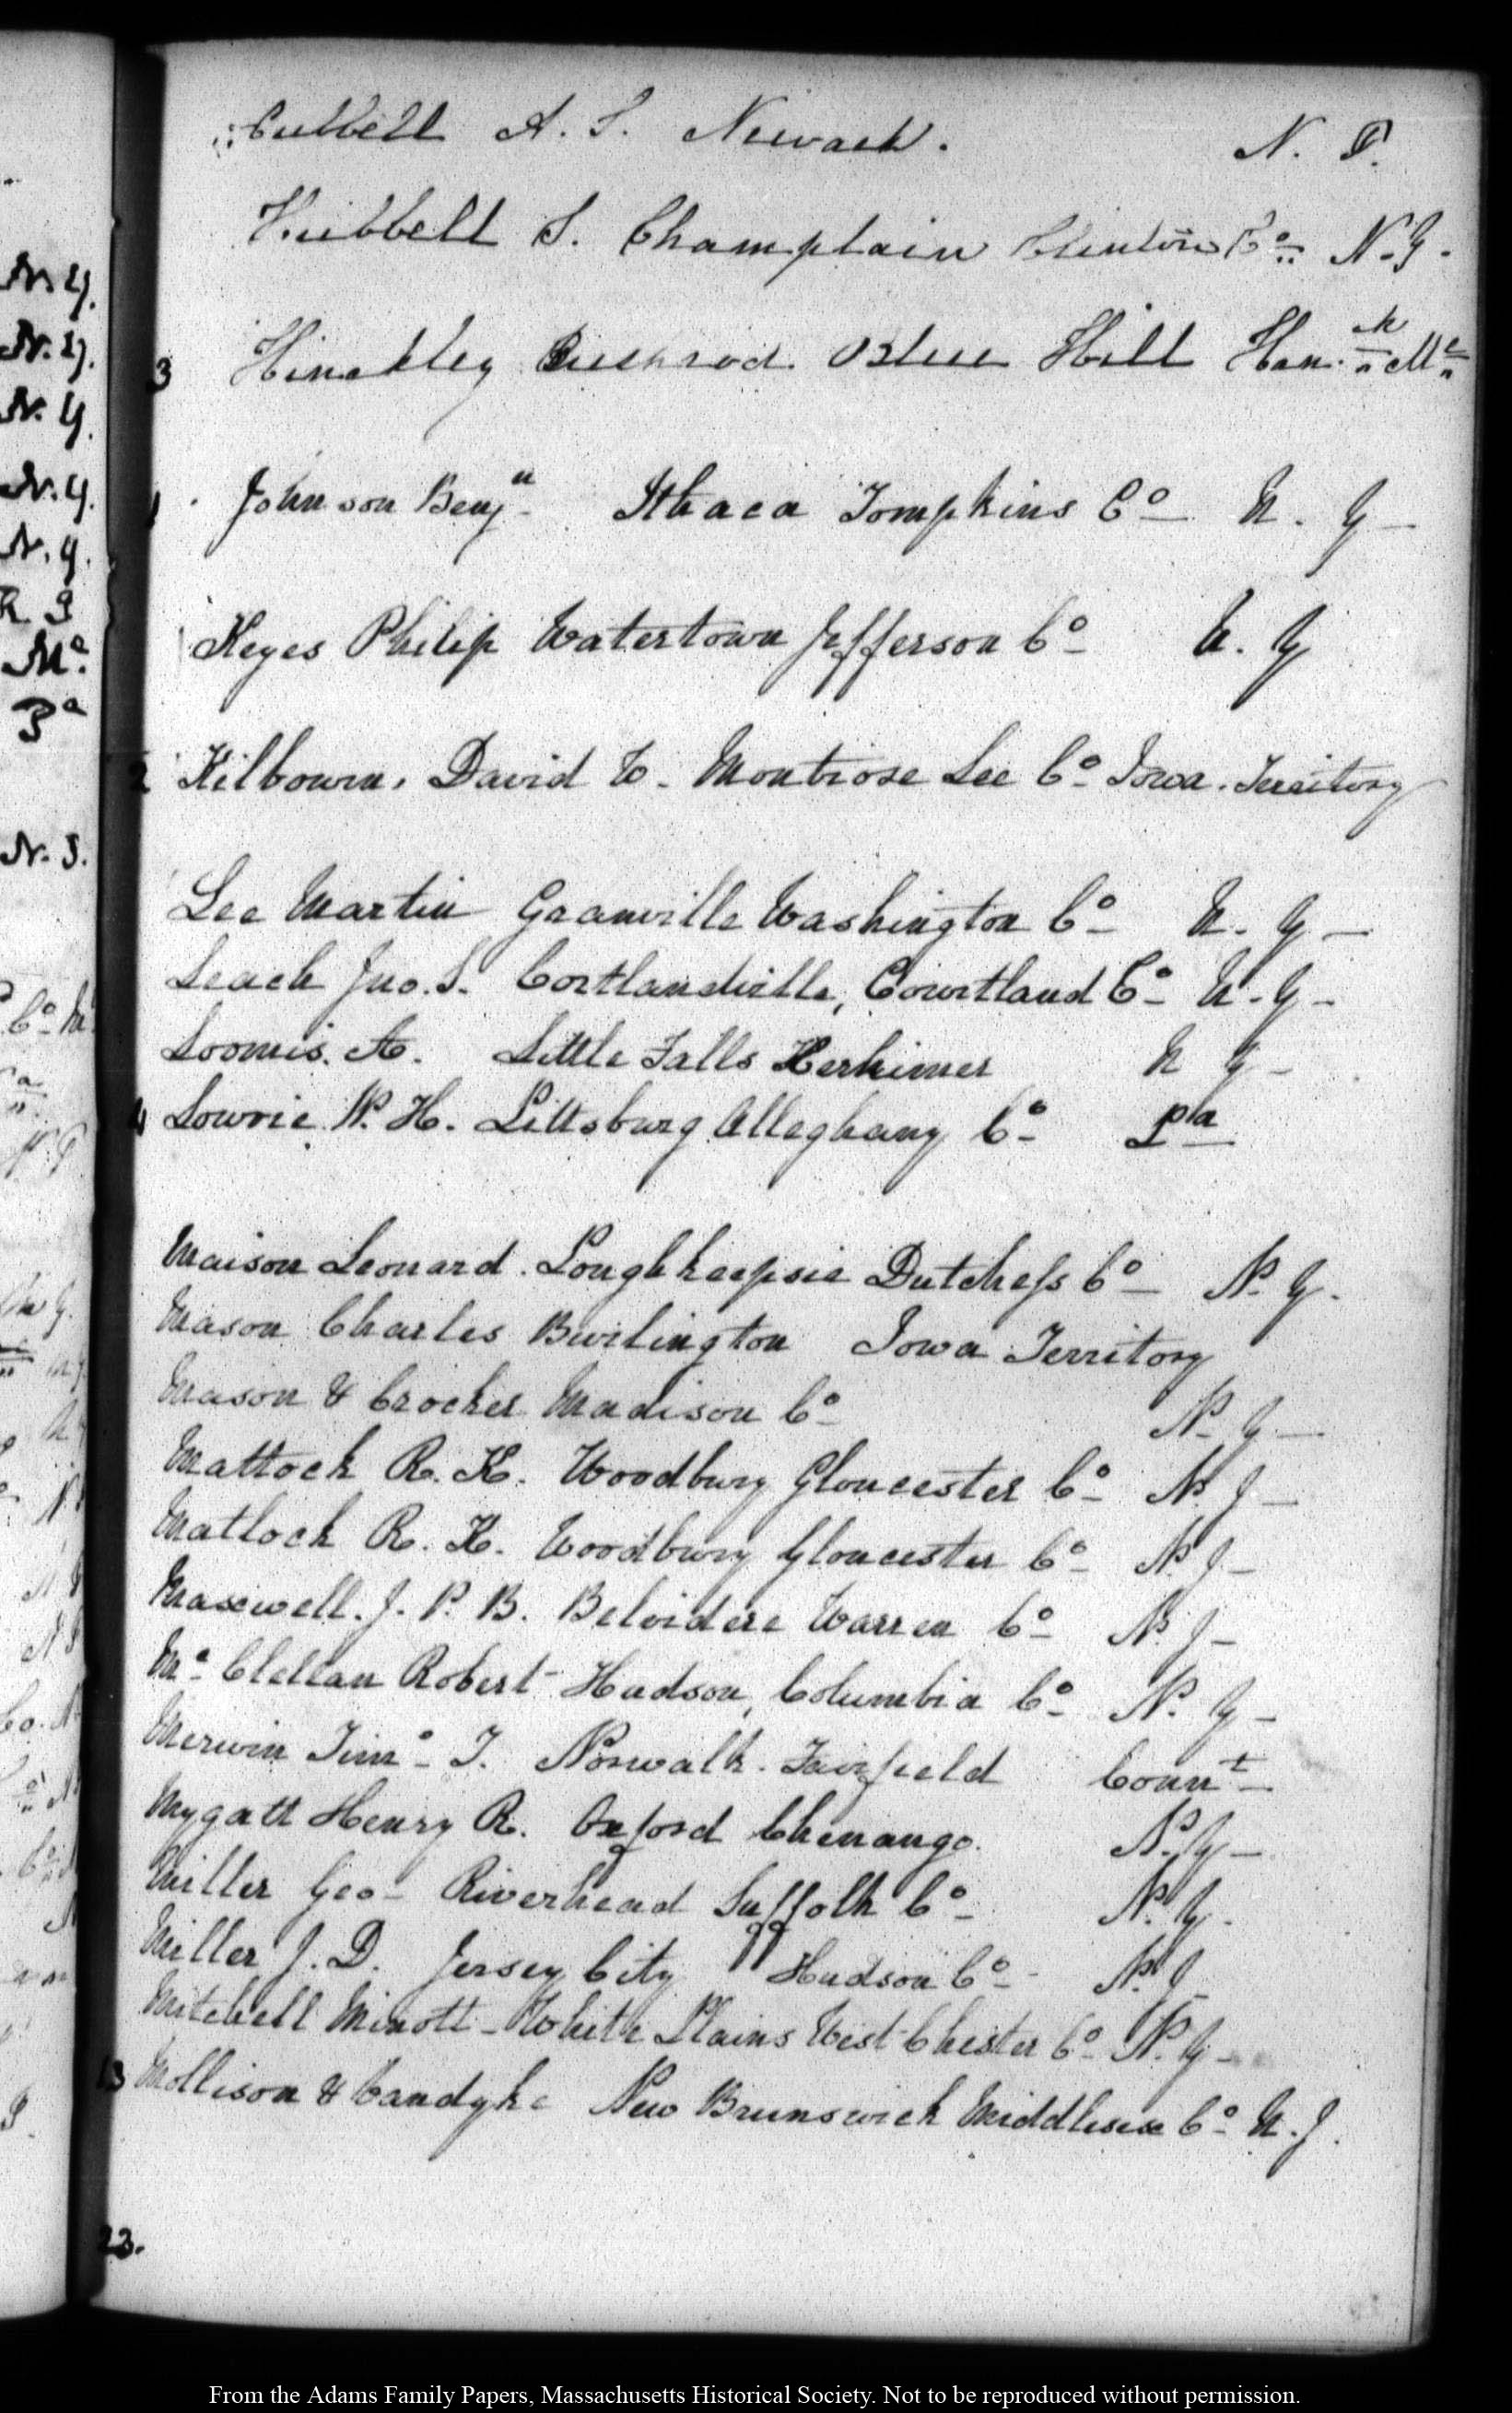 Hubbell A. S. Newark. N. J.
Hubbell S. Champlain Clinton Co. N. Y.
3 Hinckley Bushrod Blue Hill Han. k Me
1 Johnson Benjn Ithaca Tompkins Co N. Y
Keyes Philip Watertown Jefferson Co N. Y
2 Kilbourn, David W. Montrose Lee Co Iowa. Territory
Lee Martin Granville Washington Co N. Y
Leach Jno. S. Cortlandville, Courtland Co N. Y
Loomis. A. Little Falls Herkimer N Y
4 Lowrie W. H. Pittsburg Alleghany Co Pa
Maison Leonard. Poughkeepsie Dutchess Co N. Y.
Mason Charles Burlington Iowa Territory
Mason & Crocker Madison Co N. Y
Mattock R. K. Woodbury Gloucester Co N. J
Matlock R. K. Woodbury Gloucester Co N. J
Maxwell. J. P. B. Belvidere Warren Co N. J
Mc Clellan Robert Hudson, Columbia Co N. Y
Merwin Timo T. Norwalk. Fairfield Connt
Mygatt Henry R. Oxford Chenango. N. Y
Miller Geo Riverhead Suffolk Co N. Y.
Miller J. D. Jersey City Hudson Co N. J
Mitchell Minott White Plains West Chester Co N. Y
13 Mollison & Vandyke New Brunswick Middlesex Co N. J.
23.
N Y.
N. Y.
N. Y.
N. Y.
N. Y.
R I
Me.
Pa
N. J.
From the Adams Family Papers, Massachusetts Historical Society. Not to be reproduced without permission.